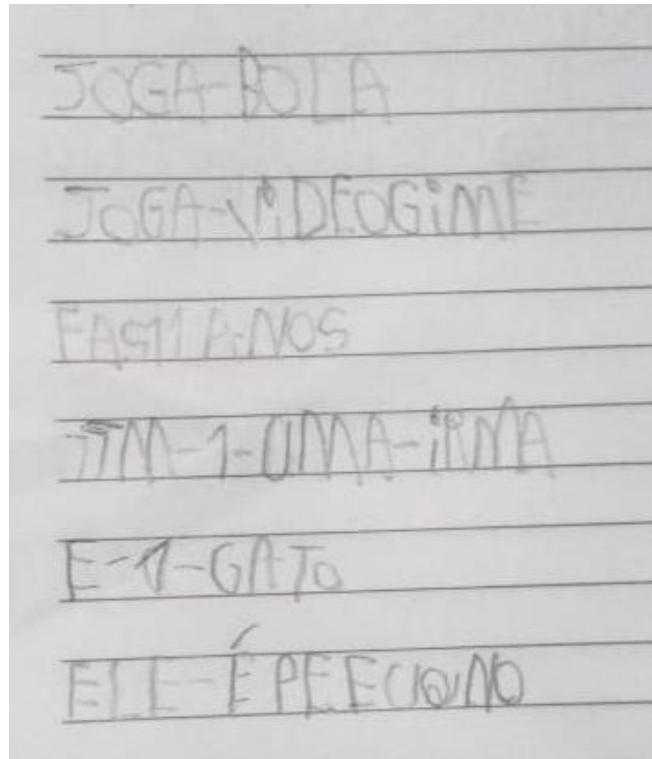 JOGA-BOLA
JOGA-ViDEOGiME
FAS11 A-NOS
TTM-1-UMA-iRMA
E-1-GATO
ELE-É PEECIONO